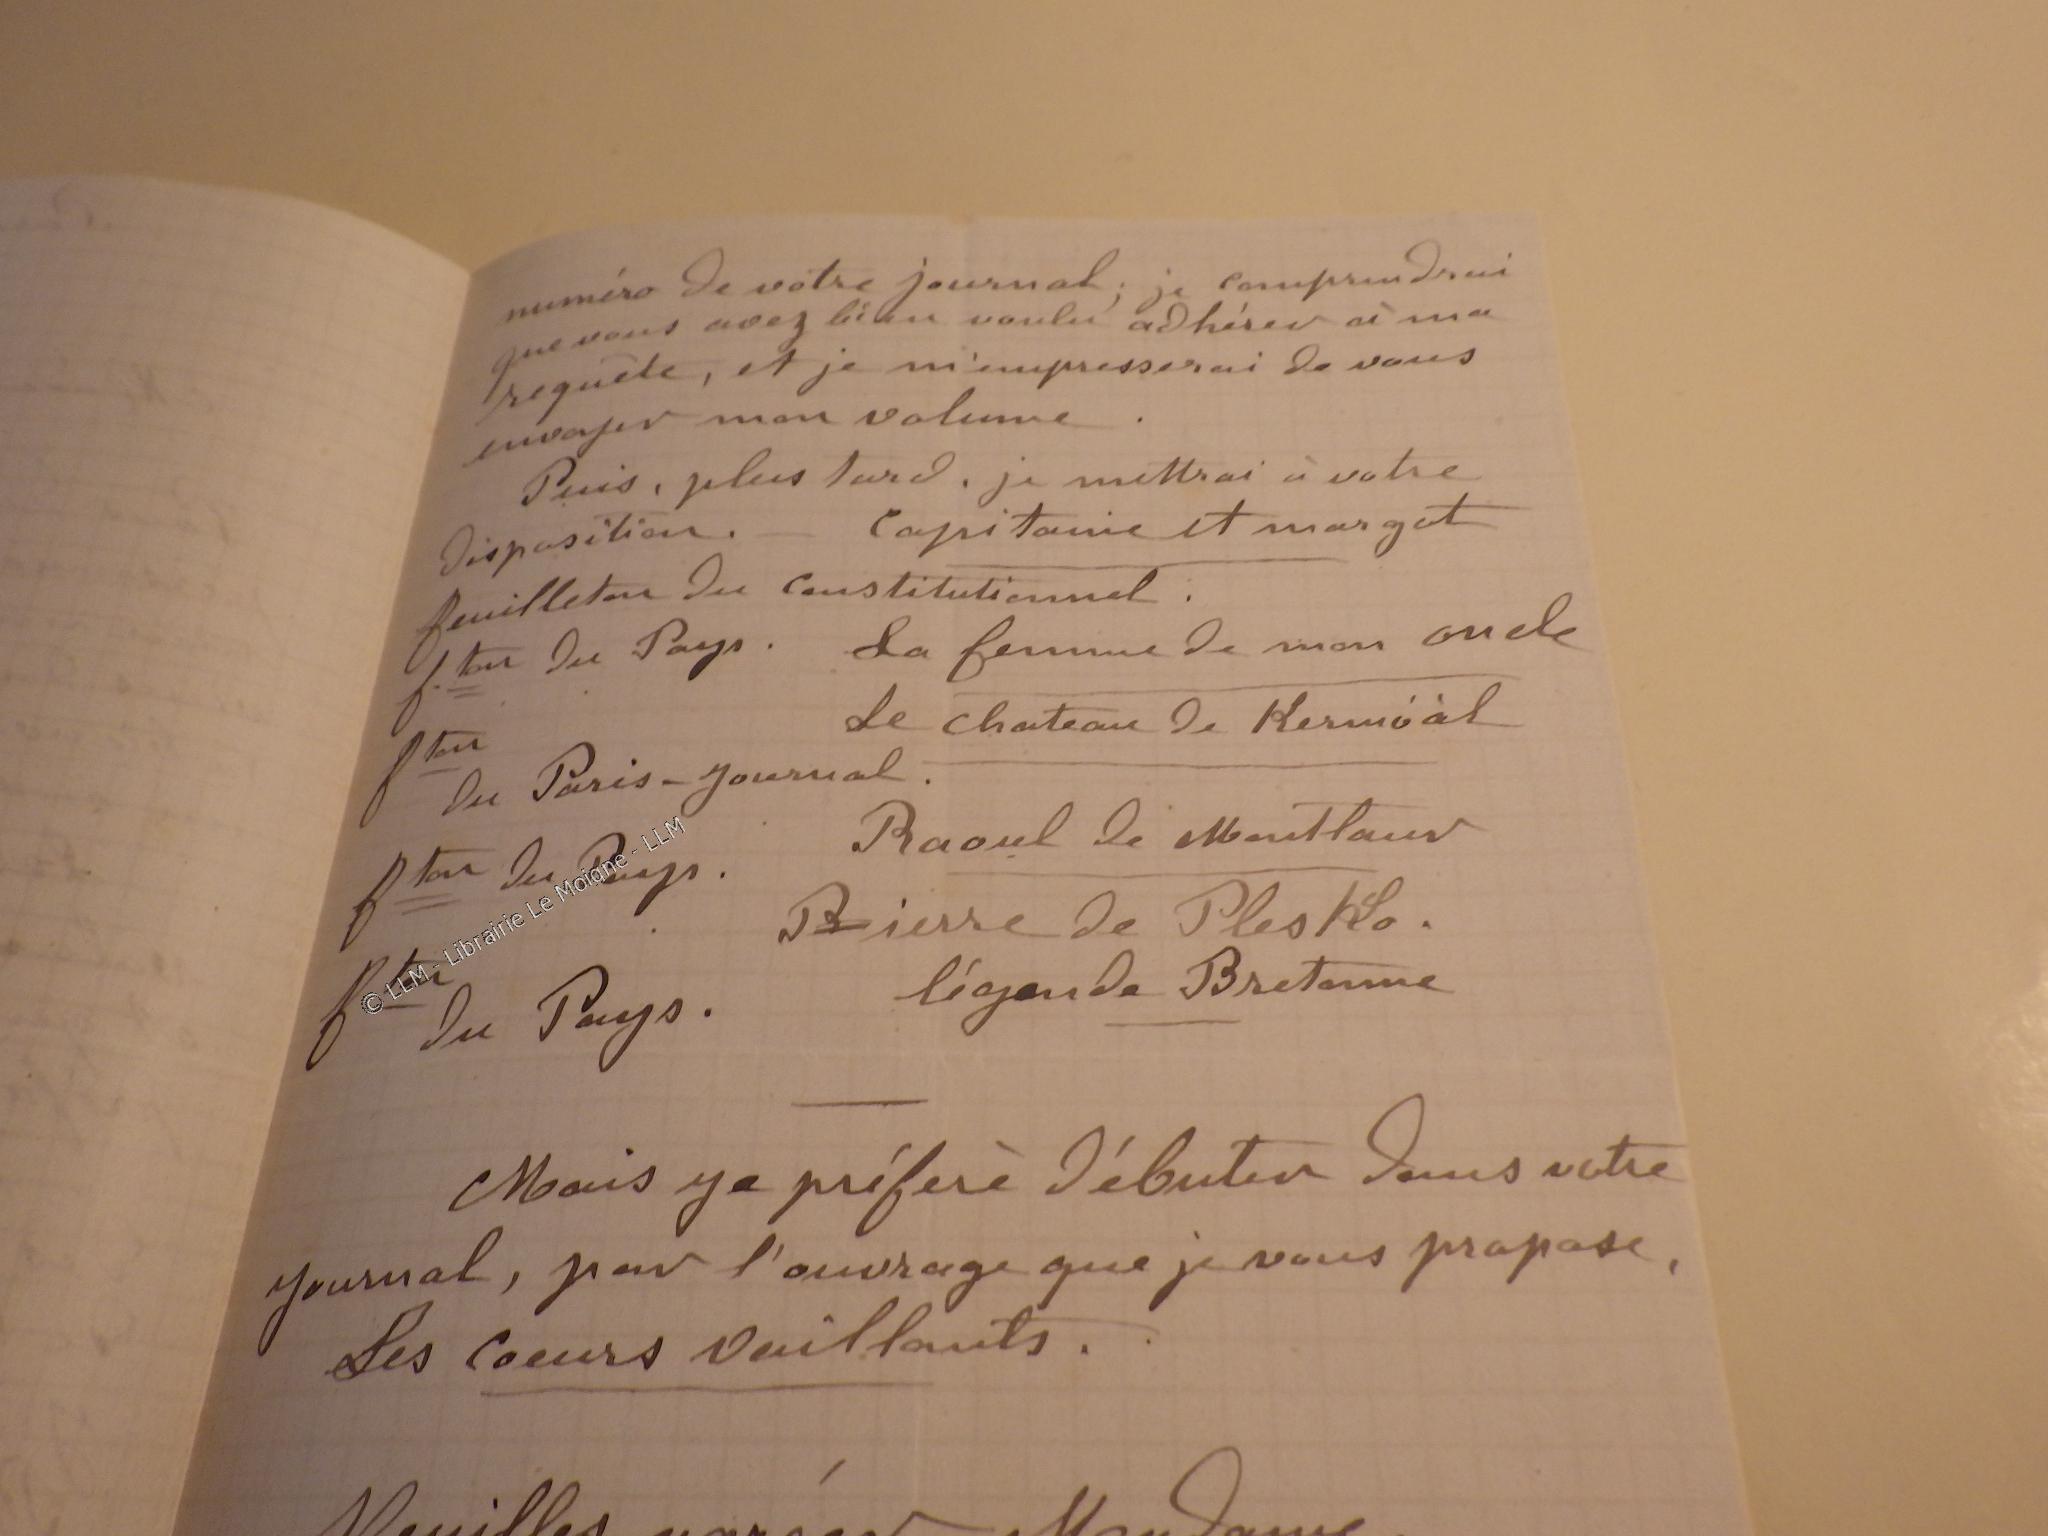 numéro de votre journal ; je comprendrai
que vous avez bien voulu adhérer à ma
requête, et je m'empresserai de vous
envoyer mon volume .
Puis, plus tard, je mettrai à votre
disposition. — Capitaine et margot
feuilleton du constitutionnel .
f.ton du Pays . La femme de mon oncle
fton Le chateau de Kermóàl
du Paris-Journal .
fton du Pays . Raoul de Montlaur
Pierre de PlesKLo .
fton légende Bretonne
du Pays .
Mais je préferè débuter dans votre
journal, par l'ouvrage que je vous propose,
Les Coeurs Vaillants .
Veuillez Madame
© LLM - Librairie Le Moigne - LLM